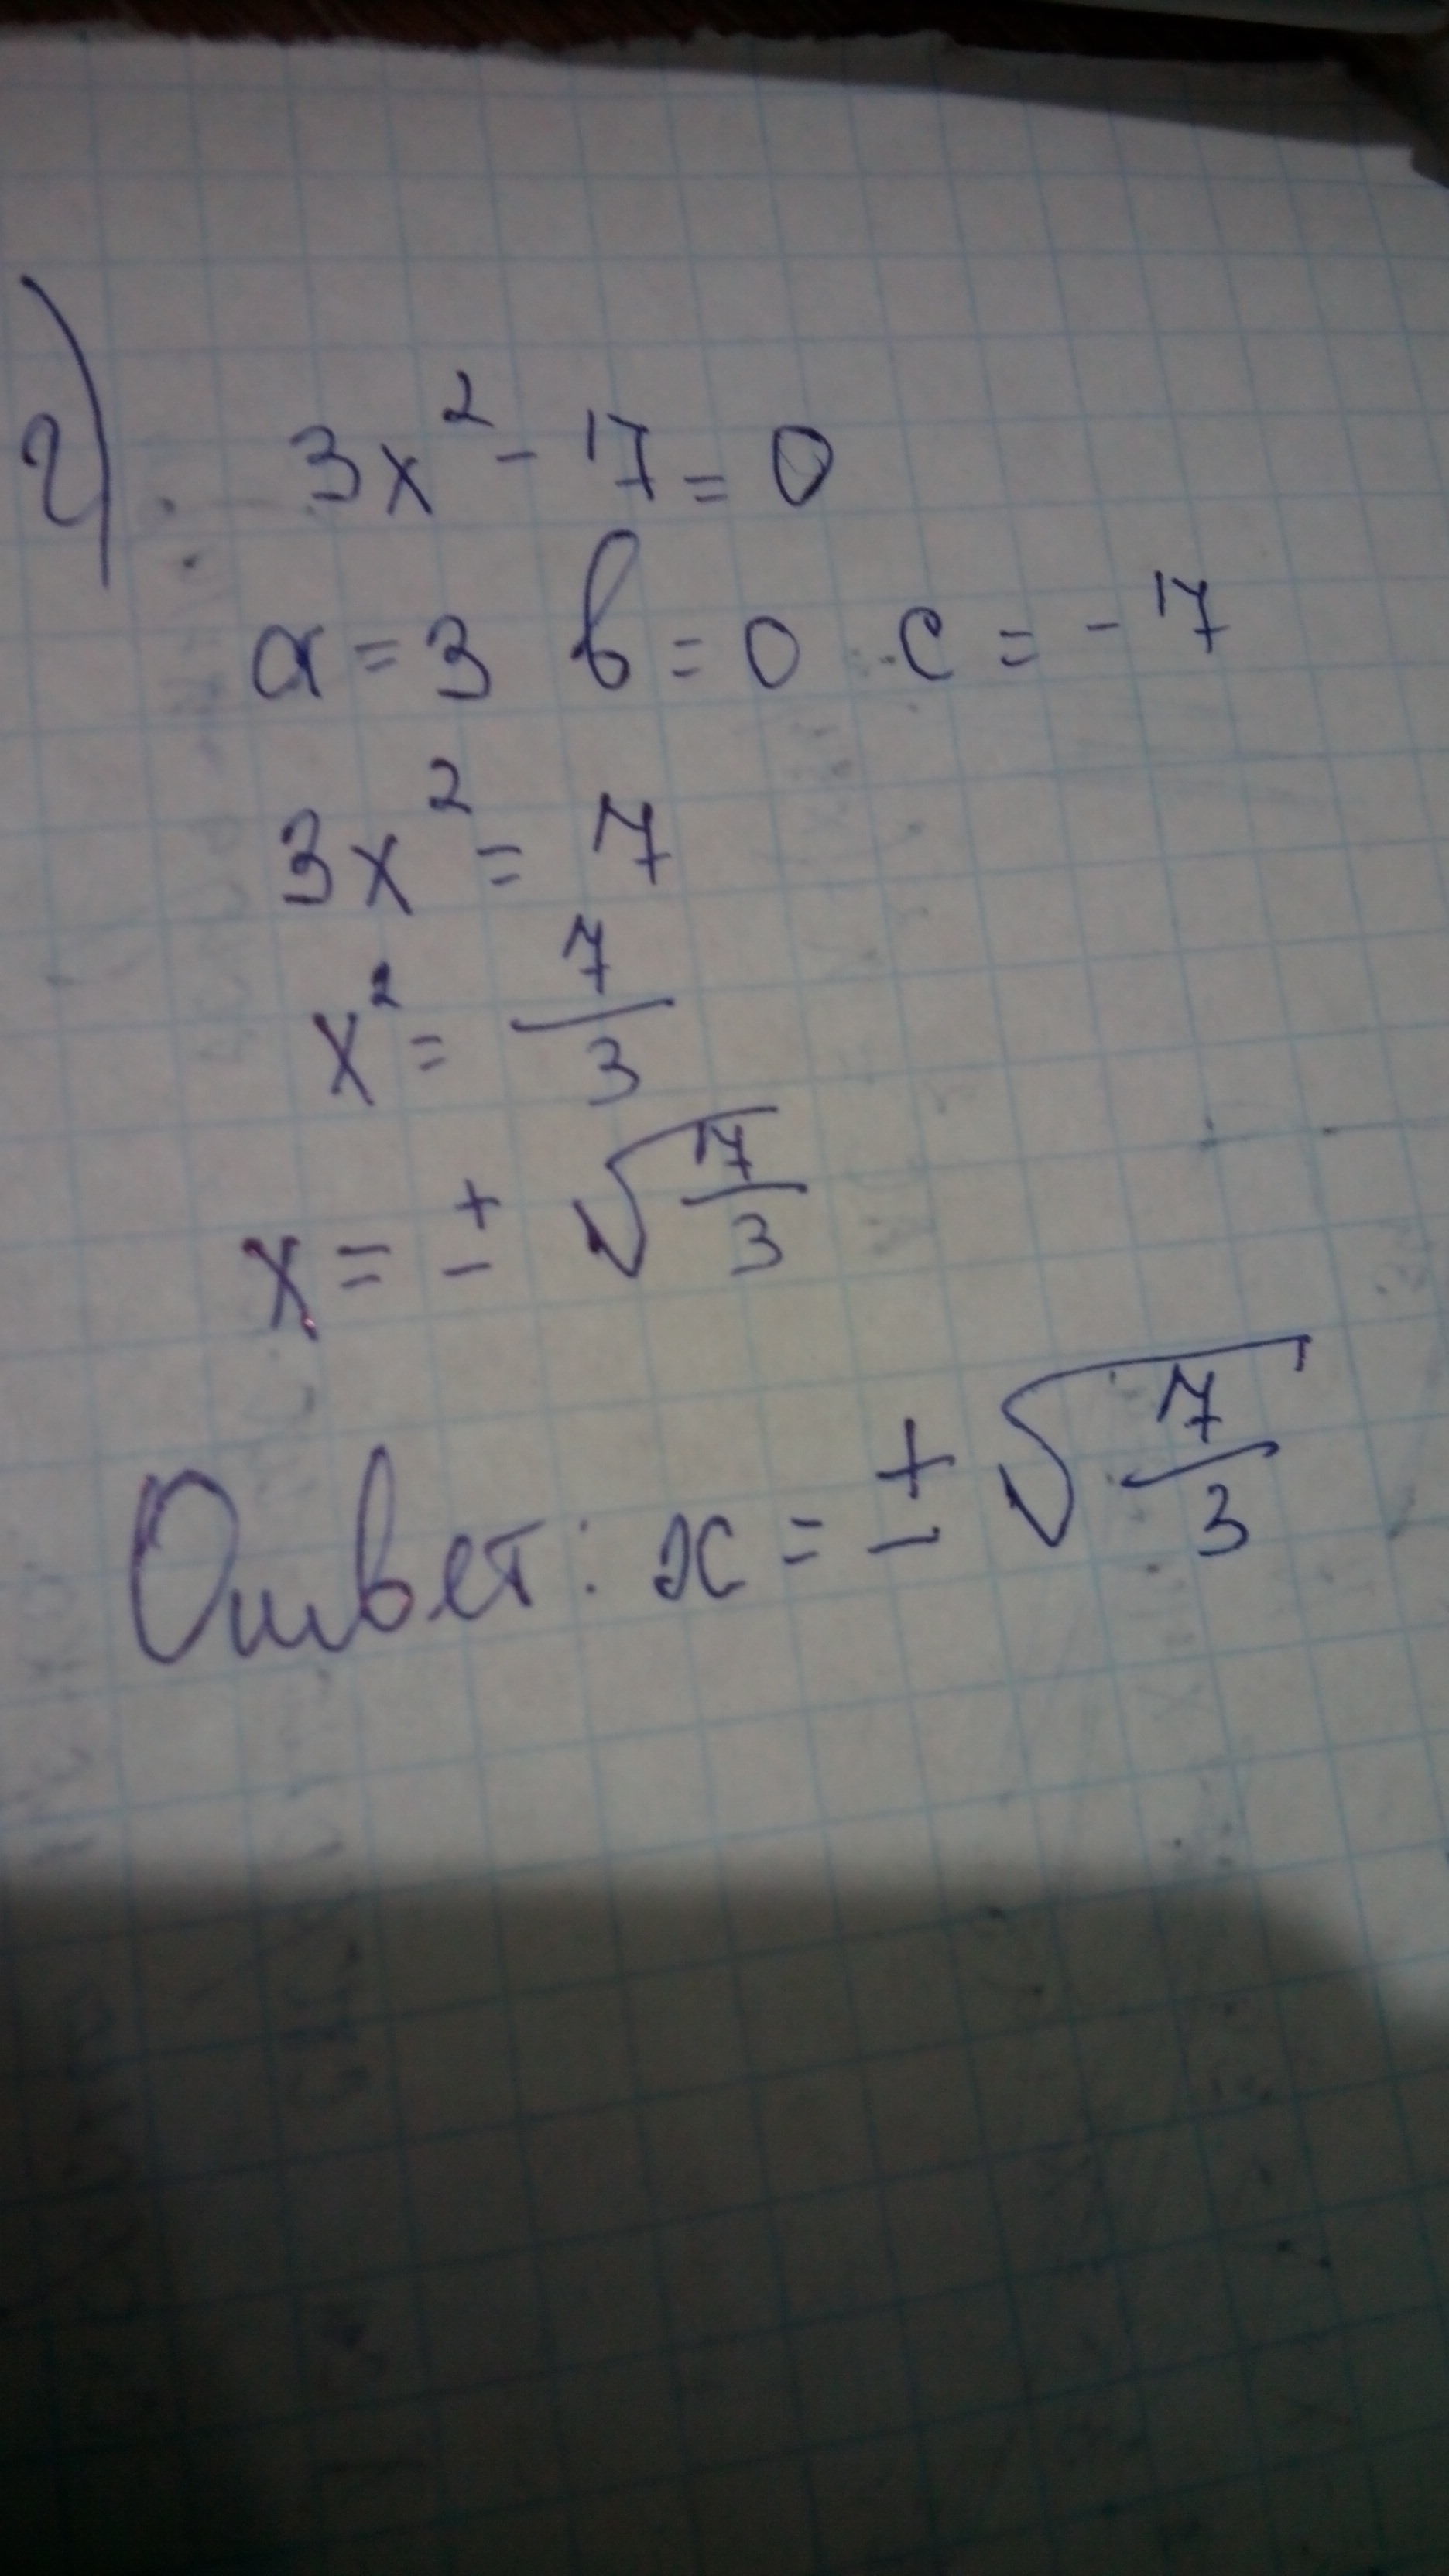 г) 3x² - 7 = 0
a = 3 в = 0 c = -7
3x² = 7
x² = 7/3
x = ± √7/3
Ответ: x = ± √7/3